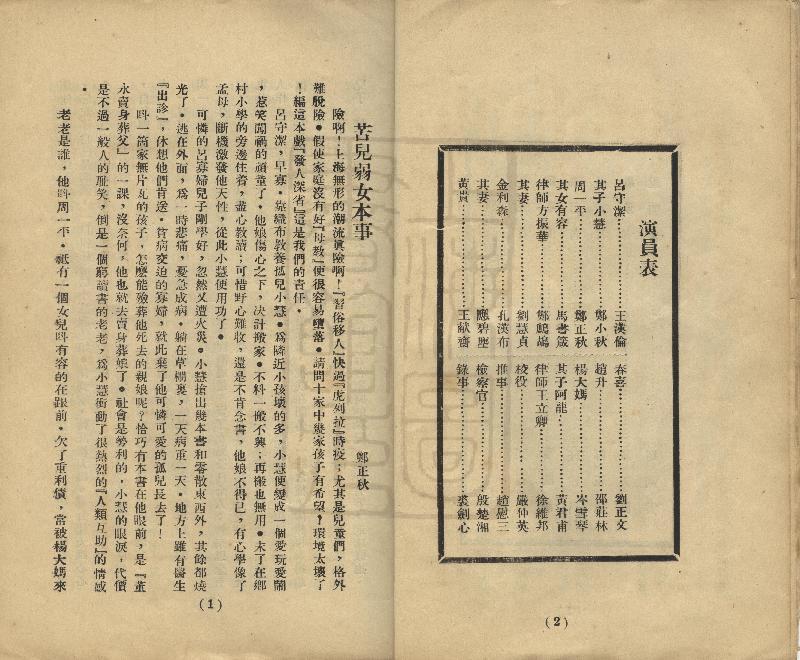 演員表
呂守潔……王漢倫
其子小慧……鄭小秋
周一平……鄭正秋
其女有容……馬書箴
律師方振華……鄭鷓鴣
其妻……劉慧貞
金利森……孔漢布
其妻……應碧塵
黃貴……王献齋
春喜……劉正文
趙升……邵莊林
楊大媽……岑雪琴
其子阿龍……黃君甫
律師王立卿……徐維邦
校役……嚴仲英
推事……趙慰三
檢察官……殷楚湘
錄事……裘劍心
(2)
苦兒弱女本事
鄭正秋
險啊!上海無形的潮流眞險啊!『習俗移人』快過『虎列拉』時疫;尤其是兒童們,格外
難脫險。假使家庭沒有好『母敎』便很容易墮落。請問十家中幾家孩子有希望?環境太壞了
!編這本戲『發人深省』這是我們的責任。
呂守潔,早寡。靠織布敎養孤兒小慧。爲隣近小孩壞的多,小慧便變成一個愛玩愛鬧
,惹笑闖禍的頑童了。他娘傷心之下,决計搬家。不料一搬不興;再搬也無用。末了在鄉
村小學的旁邊住着,盡心敎讀;可惜野心難收,還是不肯念書,他娘不得已,有心學像了
孟母,斷機激發他天性,從此小慧便用功了。
可憐的呂寡婦兒子剛學好,忽然又遭火災。小慧搶出幾本書和零散東西外,其餘都燒
光了。逃在外面,爲一時悲痛,憂急成病。躺在草棚裏,一天病重一天。地方上雖有醫生
『出診』,休想他們肯送。貧病交迫的寡婦,就此棄了他可憐可愛的孤兒長去了!
呌一箇家無片瓦的孩子,怎麼能殮葬他死去的親娘呢?恰巧有本書在他眼前,是『董
永賣身葬父』的一課,沒奈何,他也就去賣身葬娘了。社會是勢利的,小慧的眼淚,代價
是不過一般人的耻笑,倒是一個窮讀書的老老,爲小慧衝動了很熱烈的『人類互助』的情感
。
老老是誰,他呌周一平。祗有一個女兒呌有容的在跟前。欠了重利債,當被楊大媽來
(1)